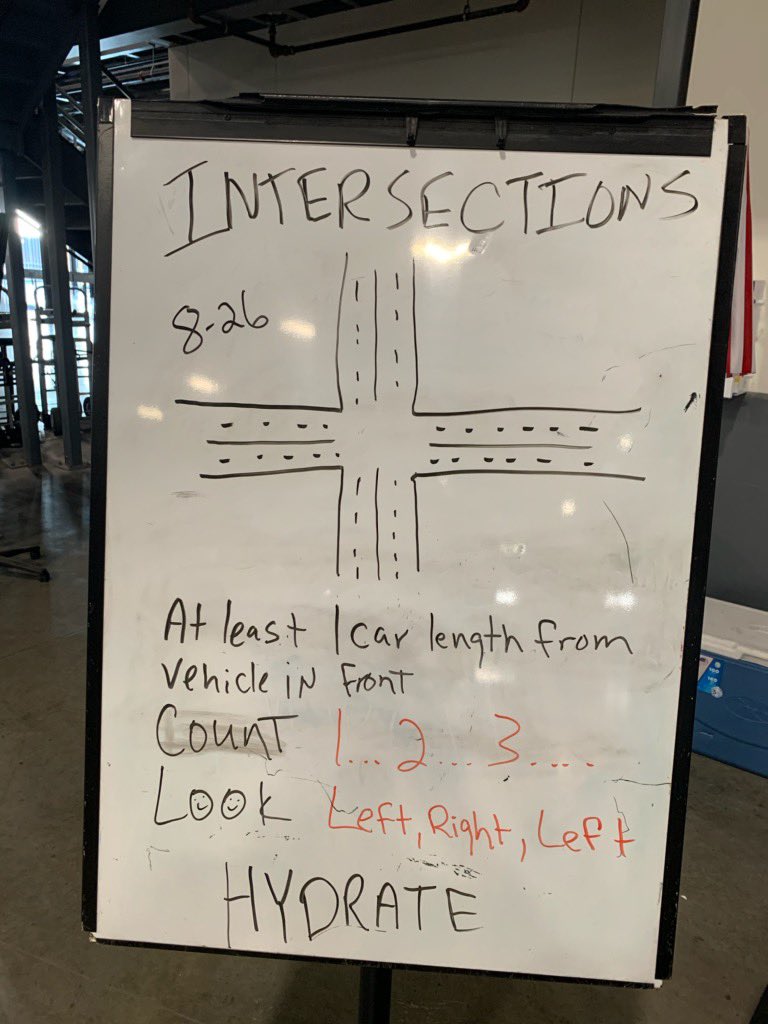 INTERSECTIONS
8-26
At least 1 car length from
vehicle in front
COUNT 1... 2... 3....
Look Left, Right, Left
HYDRATE